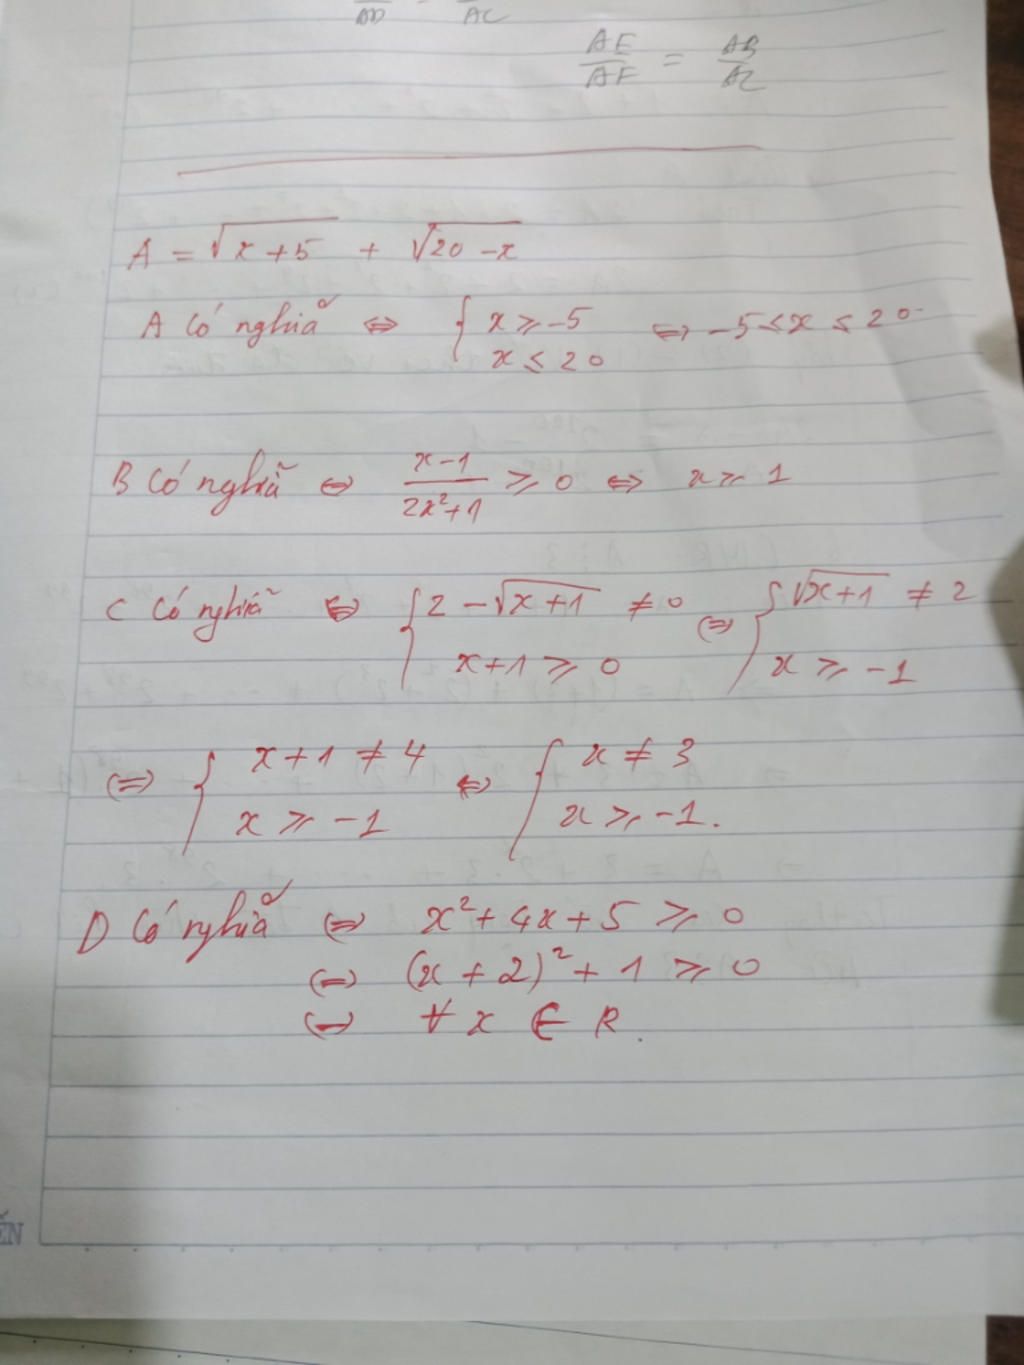 AD AC
AE/AF = AB/AC
A = √(x+5) + √(20-x)
A có nghĩa ⇔ { x ≥ -5 ⇔ -5 ≤ x ≤ 20
x ≤ 20
B có nghĩa ⇔ (x-1)/(2x²+1) ≥ 0 ⇔ x ≥ 1
C có nghĩa ⇔ { 2 - √(x+1) ≠ 0 ⇔ { √(x+1) ≠ 2
x+1 ≥ 0 x ≥ -1
⇔ { x+1 ≠ 4 ⇔ { x ≠ 3
x ≥ -1 x ≥ -1.
D có nghĩa ⇔ x² + 4x + 5 ≥ 0
⇔ (x+2)² + 1 ≥ 0
⇔ ∀ x ∈ R.